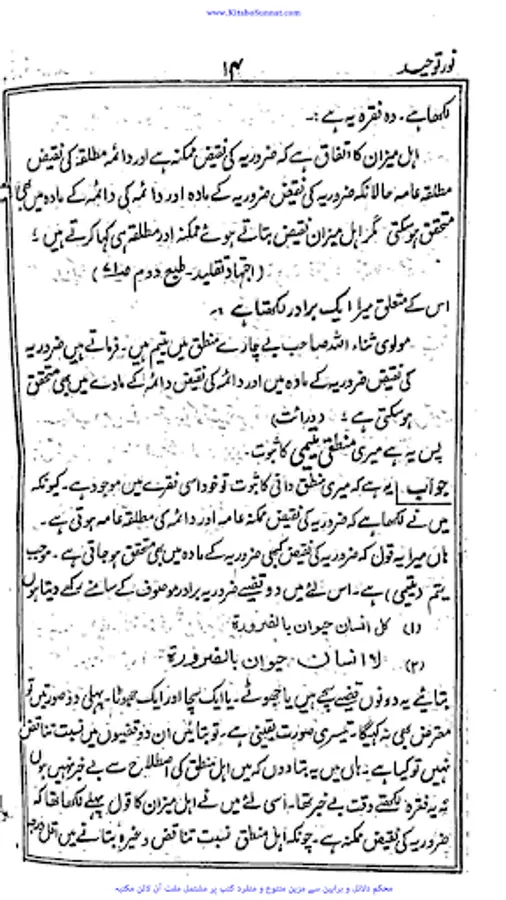 www.KitaboSunnat.com
نور توحید
۱۴
لکھا ہے۔ وہ فقرہ یہ ہے :۔
اہل میزان کا اتفاق ہے کہ ضروریہ کی نقیض ممکنہ ہے اور دائمہ مطلقہ کی نقیض
مطلقہ عامہ حالانکہ ضروریہ کی نقیض ضروریہ کے مادہ اور دائمہ کی دائمہ کے مادہ میں بھی
متحقق ہوسکتی مگر اہل میزان نقیض بتاتے ہوئے ممکنہ اور مطلقہ ہی کہا کرتے ہیں ؛
(اجتہاد تقلید۔ طبع دوم
اس کے متعلق میرا ایک برادر لکھتا ہے ؛۔
مولوی ثناء اللہ صاحب بے چارے منطق میں یتیم ہیں۔ فرماتے ہیں ضروریہ
کی نقیض ضروریہ کے مادہ میں اور دائمہ کی نقیض دائمہ کے مادے میں بھی متحقق
ہوسکتی ہے ؛
پس یہ ہے میری منطقی یتیمی کا ثبوت۔
جواب | یہ ہے کہ میری منطق دانی کا ثبوت تو خود اسی فقرے میں موجود ہے۔ کیونکہ
میں نے لکھا ہے کہ ضروریہ کی نقیض ممکنہ عامہ اور دائمہ کی مطلقہ عامہ ہوتی ہے۔
ہاں میرا یہ قول کہ ضروریہ کی نقیض کبھی ضروریہ کے مادہ میں بھی متحقق ہو جاتی ہے۔ موجب
یتم (یتیمی) ہے۔ اس لئے میں دو قضیئے ضروریہ برادر موصوف کے سامنے رکھے دیتا ہوں
(۱) کل انسان حیوان بالضرورۃ
(۲) لا انسان حیوان بالضرورۃ
بتائیے یہ دونوں قضیئے سچے ہیں یا جھوٹے۔ یا ایک سچا اور ایک جھوٹا۔ پہلی دو صورتیں تو
معترض بھی نہ کہیگا۔ تیسری صورت یقینی ہے۔ تو بتائیں ان دو قضیوں میں نسبت تناقض
نہیں تو کیا ہے۔ ہاں میں یہ بتا دوں کہ میں اہل منطق کی اصطلاح سے بے خبر نہیں ہوں
نہ یہ فقرہ لکھتے وقت بے خبر تھا۔ اسی لئے میں نے اہل میزان کا قول پہلے لکھا تھا کہ
ضروریہ کی نقیض ممکنہ ہے۔ چونکہ اہل منطق نسبت تناقض وغیرہ بتانے میں اقل درجہ
محکم دلائل و براہین سے مزین متنوع و منفرد کتب پر مشتمل مفت آن لائن مکتبہ